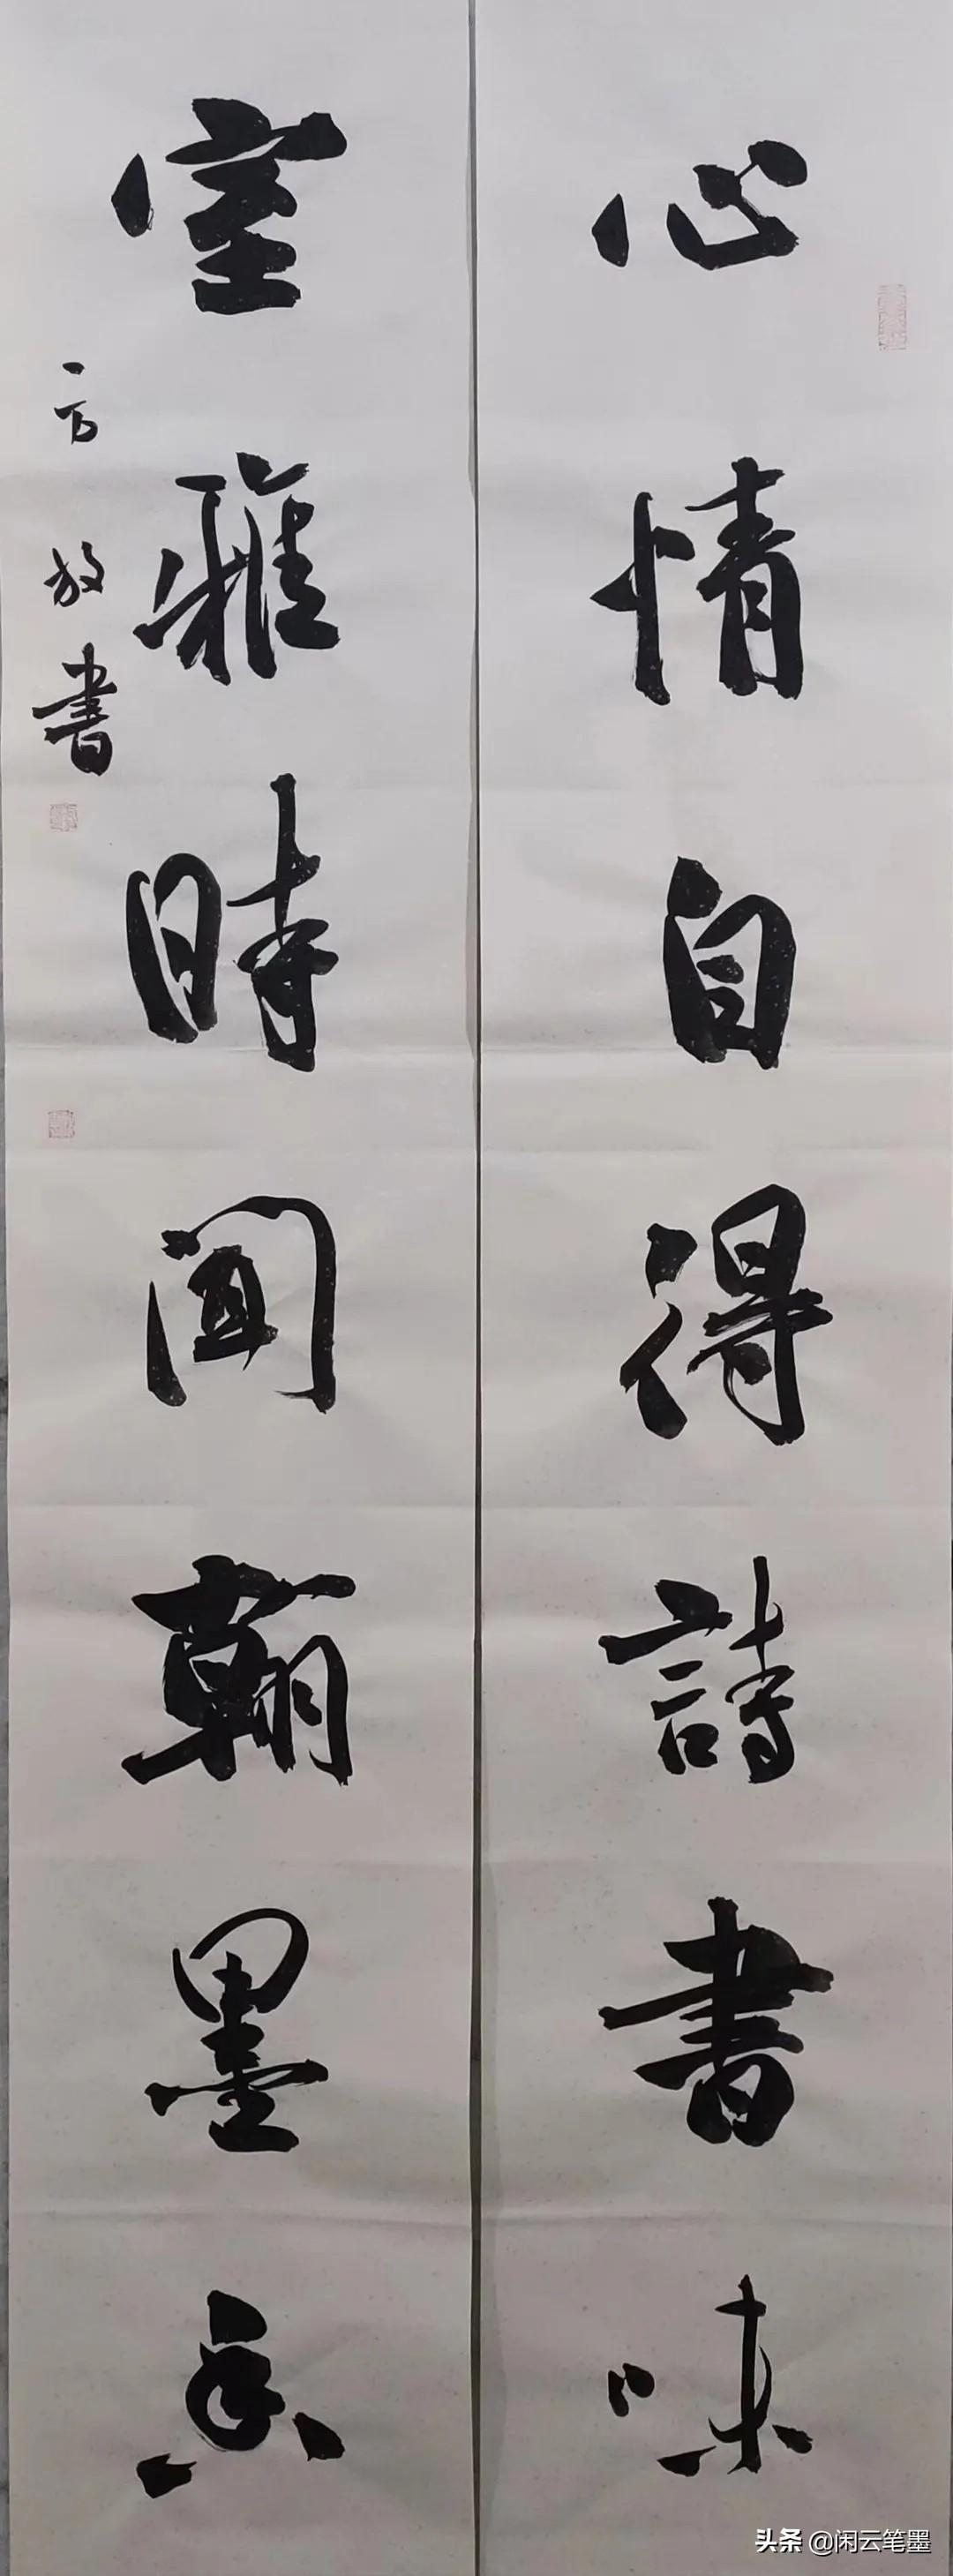 心情自得詩書味
室雅時聞翰墨香
方放書
头条 @闲云笔墨